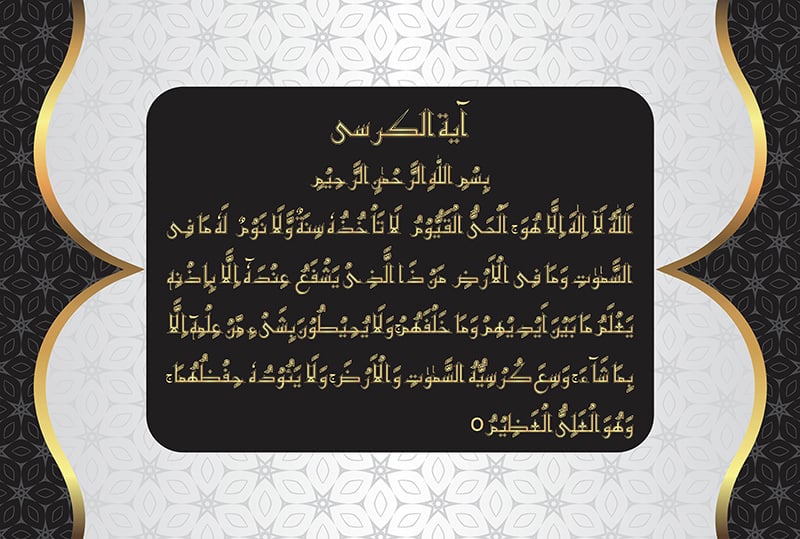 آية الكرسى
بِسْمِ اللّٰهِ الرَّحْمٰنِ الرَّحِيْمِ
اَللّٰهُ لَآ اِلٰهَ اِلَّا هُوَۚ اَلْحَىُّ الْقَيُّوْمُ لَا تَاْخُذُهٗ سِنَةٌ وَّلَا نَوْمٌ لَهٗ مَا فِى
السَّمٰوٰتِ وَمَا فِى الْاَرْضِ مَنْ ذَا الَّذِىْ يَشْفَعُ عِنْدَهٗٓ اِلَّا بِاِذْنِهٖ
يَعْلَمُ مَا بَيْنَ اَيْدِيْهِمْ وَمَا خَلْفَهُمْۚ وَلَا يُحِيْطُوْنَ بِشَىْءٍ مِّنْ عِلْمِهٖٓ اِلَّا
بِمَا شَآءَۚ وَسِعَ كُرْسِيُّهُ السَّمٰوٰتِ وَالْاَرْضَۚ وَلَا يَئُوْدُهٗ حِفْظُهُمَاۚ
وَهُوَ الْعَلِىُّ الْعَظِيْمُ O